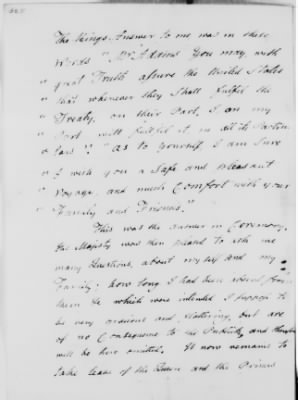 The Kings Answer to me was in these
Words "Mr Adams You may, with
" great Truth assure the United States
" that whenever they Shall fulfil the
" Treaty, on their Part, I, on my
" Part will fulfill it in all its Particu
" lars". " As to yourself, I am Sure
" I wish you a Safe and pleasant
" Voyage, and much Comfort with your
" Family and Friends."
This was the answer in Ceremony.
His Majesty was then pleased to ask me
many Questions, about myself and my
Family; how long I had been absent from
them &c which were intended I suppose to
be very gracious and flattering, but are
of no Consequence to the Publick, and therefore
will be here omitted. It now remains to
take leave of the Queen and the Princes